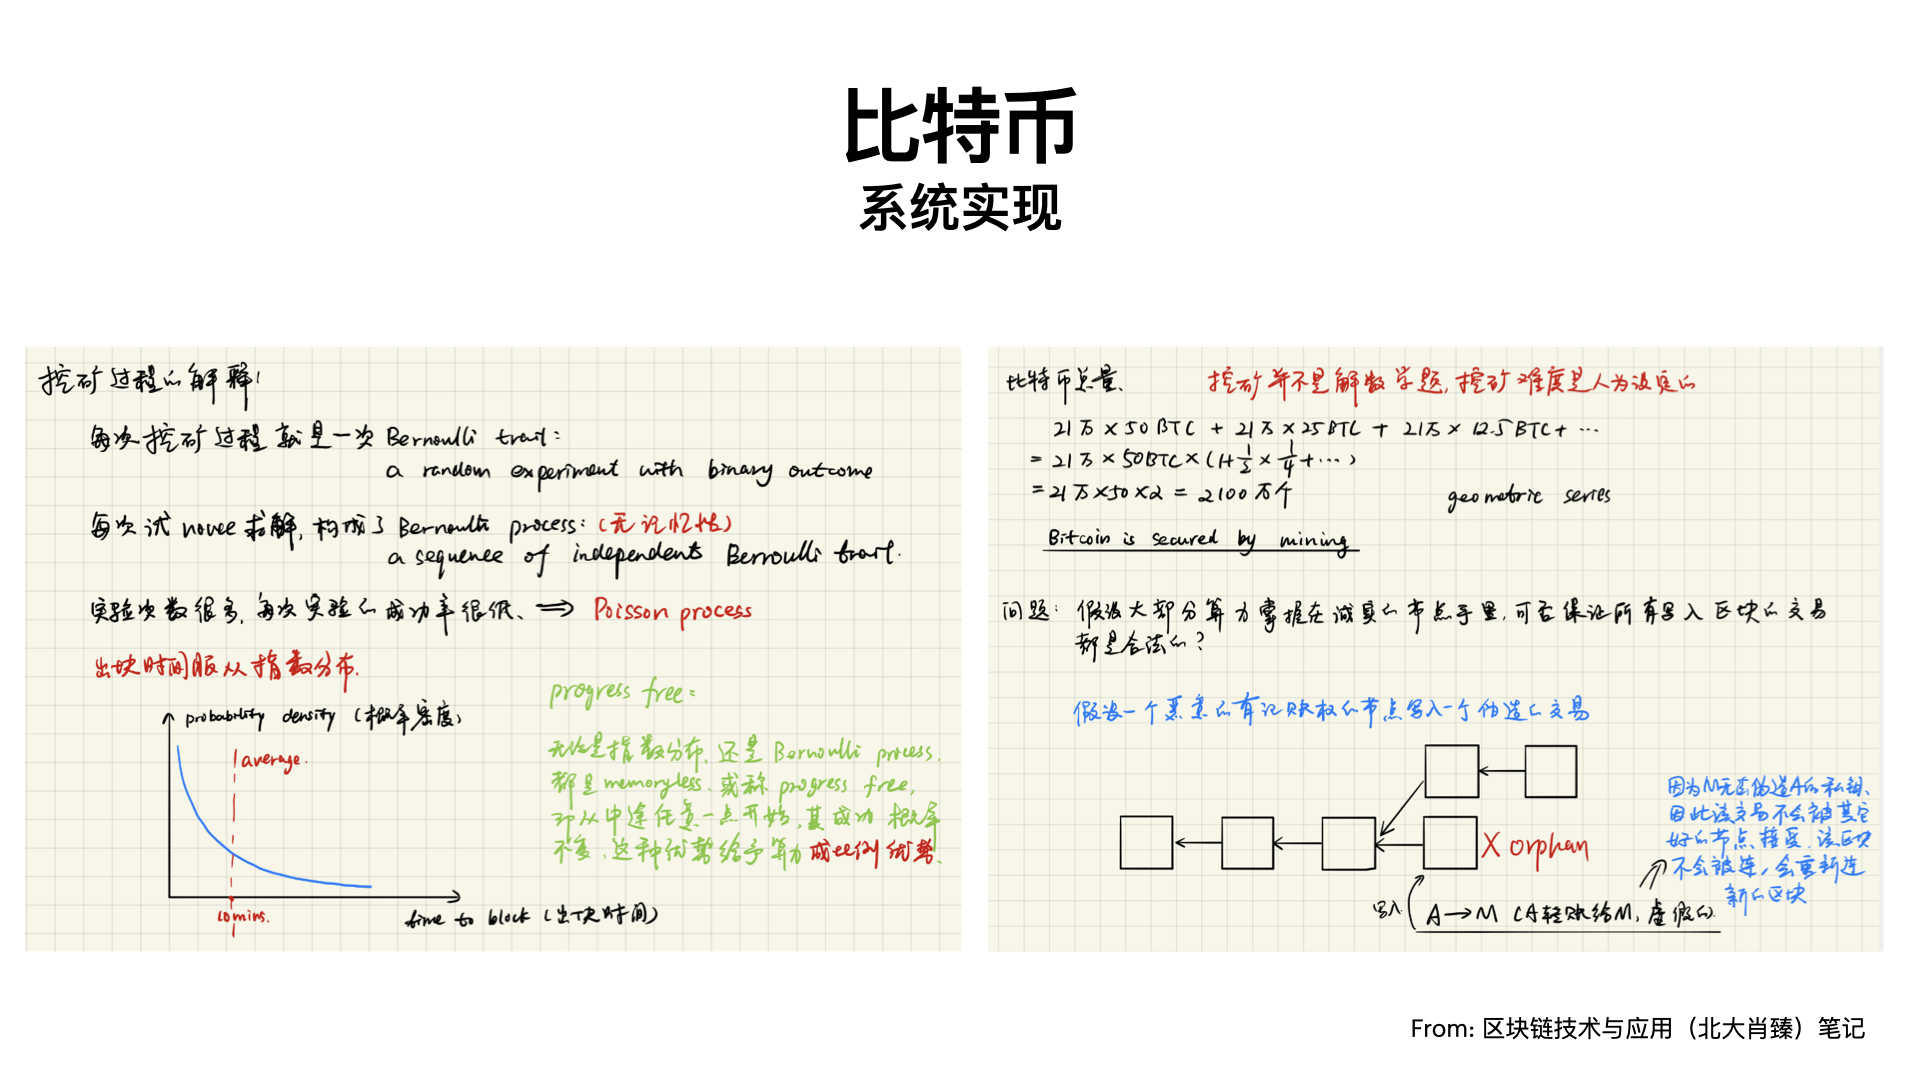 比特币
系统实现
挖矿过程的解释:
每次挖矿过程就是一次 Bernoulli trail:
a random experiment with binary outcome
每次试 nonce 求解, 构成了 Bernoulli process: (无记忆性)
a sequence of independent Bernoulli trail.
实验次数很多, 每次实验的成功率很低、 ⟹ Poisson process
出块时间服从指数分布.
probability density (概率密度)
average.
10mins.
time to block (出块时间)
progress free:
无论是指数分布, 还是 Bernoulli process.
都是 memoryless、或称 progress free,
即从中途任意一点开始, 其成功概率
不变. 这种优势给予算力成比例优势.
比特币总量、
挖矿并不是解数学题, 挖矿难度是人为设定的
21万 × 50 BTC + 21万 × 25BTC + 21万 × 12.5 BTC + ···
= 21万 × 50BTC × (1+ 1/2 × 1/4 + ···)
= 21万×50×2 = 2100万个
geometric series
Bitcoin is secured by mining
问题: 假设大部分算力掌握在诚实的节点手里, 可否保证所有写入区块的交易
都是合法的?
假设一个恶意的有记账权的节点写入一个伪造的交易
X orphan
写入
A→M (A转账给M, 虚假的)
因为M无法伪造A的私钥、
因此该交易不会被其它
好的节点接受. 该区块
不会被连, 会重新连
新的区块
From: 区块链技术与应用（北大肖臻）笔记